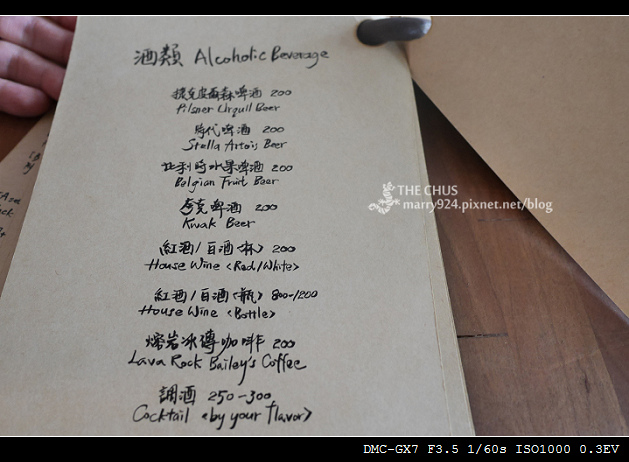 酒類 Alcoholic Beverage
捷克皮爾森啤酒 200
Pilsner Urquil Beer
時代啤酒 200
Stella Artois Beer
比利時水果啤酒 200
Belgian Fruit Beer
夸克啤酒 200
Kwak Beer
紅酒/白酒<杯> 200
House Wine <Red/White>
紅酒/白酒<瓶> 800-1200
House Wine <Bottle>
熔岩冰磚咖啡 200
Lava Rock Bailey's Coffee
調酒 250-300
Cocktail <by your flavor>
THE CHUS
marry924.pixnet.net/blog
DMC-GX7 F3.5 1/60s ISO1000 0.3EV